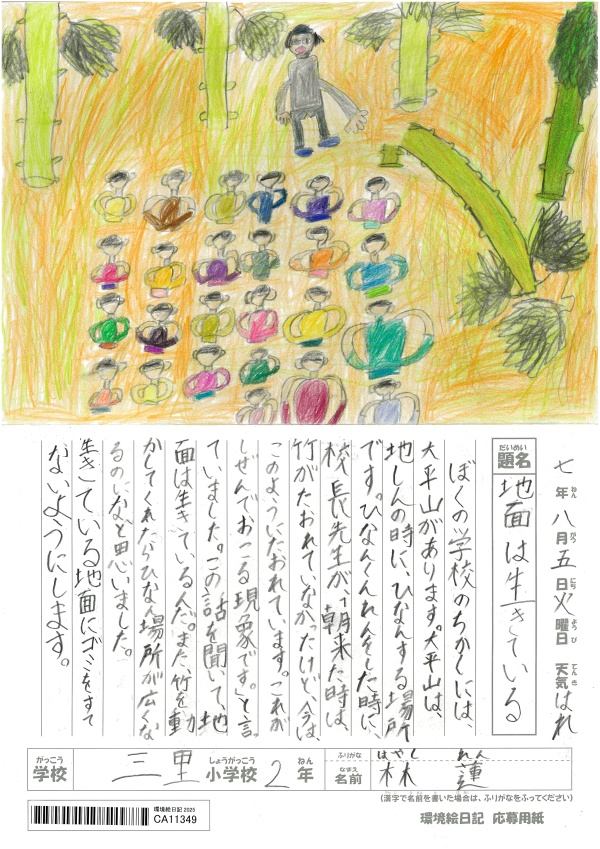 七年八月五日火曜日 天気はれ
ねん がつ にち ようび てんき
だいめい
題名 地面は生きている
ぼくの学校のちかくには、
大平山があります。大平山は、
地しんの時に、ひなんする場所
です。ひなんくんれんをした時に、
校長先生が、「朝来た時は、
竹がたおれていなかったけど、今は、
このようにたおれています。これが
しぜんでおこる現象です。」と言っ
ていました。この話を聞いて、地
面は生きている人だ。また、竹を動
かしてくれたらひなん場所が広くな
るのになと思いました。
生きている地面にゴミをすて
ないようにします。
がっこう しょうがっこう ねん
学校 三里 小学校 2年
ふりがな はやし れん
なまえ
名前 林 蓮
(漢字で名前を書いた場合は、ふりがなをふってください)
環境絵日記 2025
CA11349
環境絵日記 応募用紙